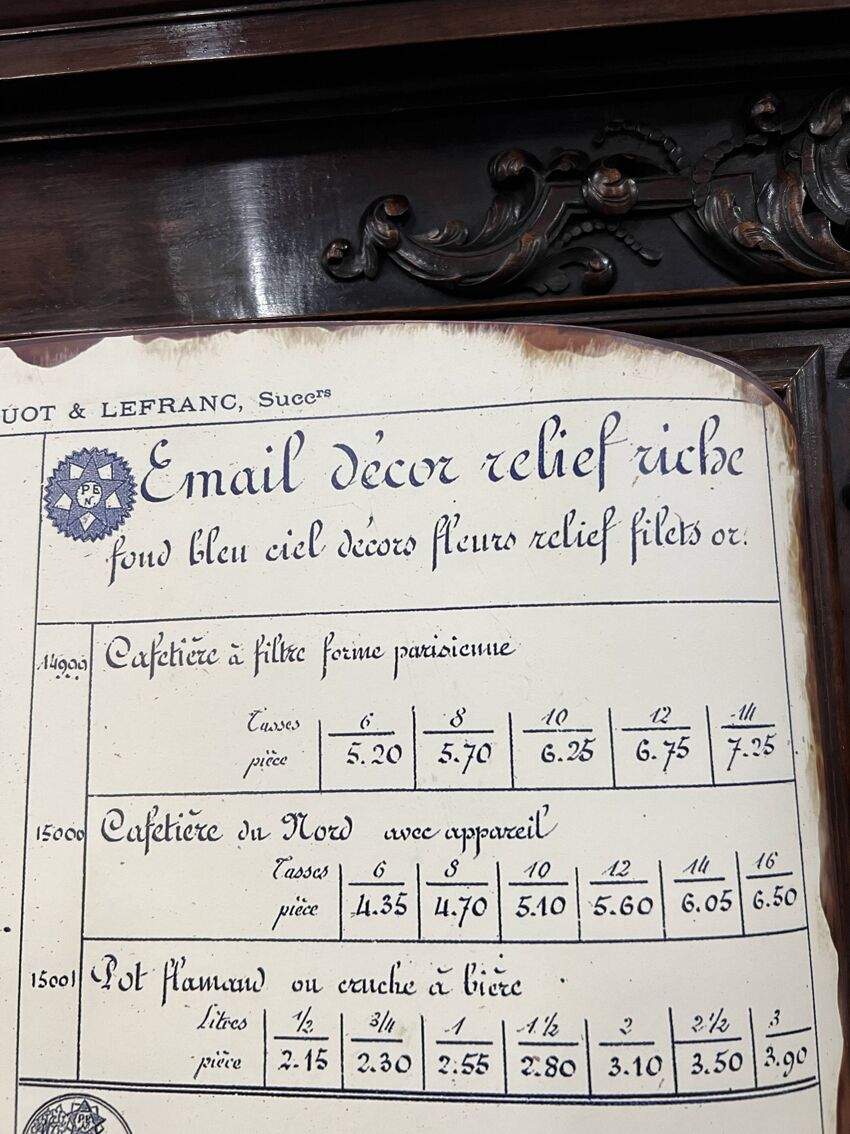 UOT & LEFRANC, Succrs
PE
N.
Email décor relief riche
fond bleu ciel décors fleurs relief filets or.
14999 Cafetière à filtre forme parisienne
Tasses 6 8 10 12 14
pièce 5.20 5.70 6.25 6.75 7.25
15000 Cafetière du Nord avec appareil
Tasses 6 8 10 12 14 16
pièce 4.35 4.70 5.10 5.60 6.05 6.50
15001 Pot flamand ou cruche à bière
Litres 1/2 3/4 1 1 1/2 2 2 1/2 3
pièce 2.15 2.30 2.55 2.80 3.10 3.50 3.90